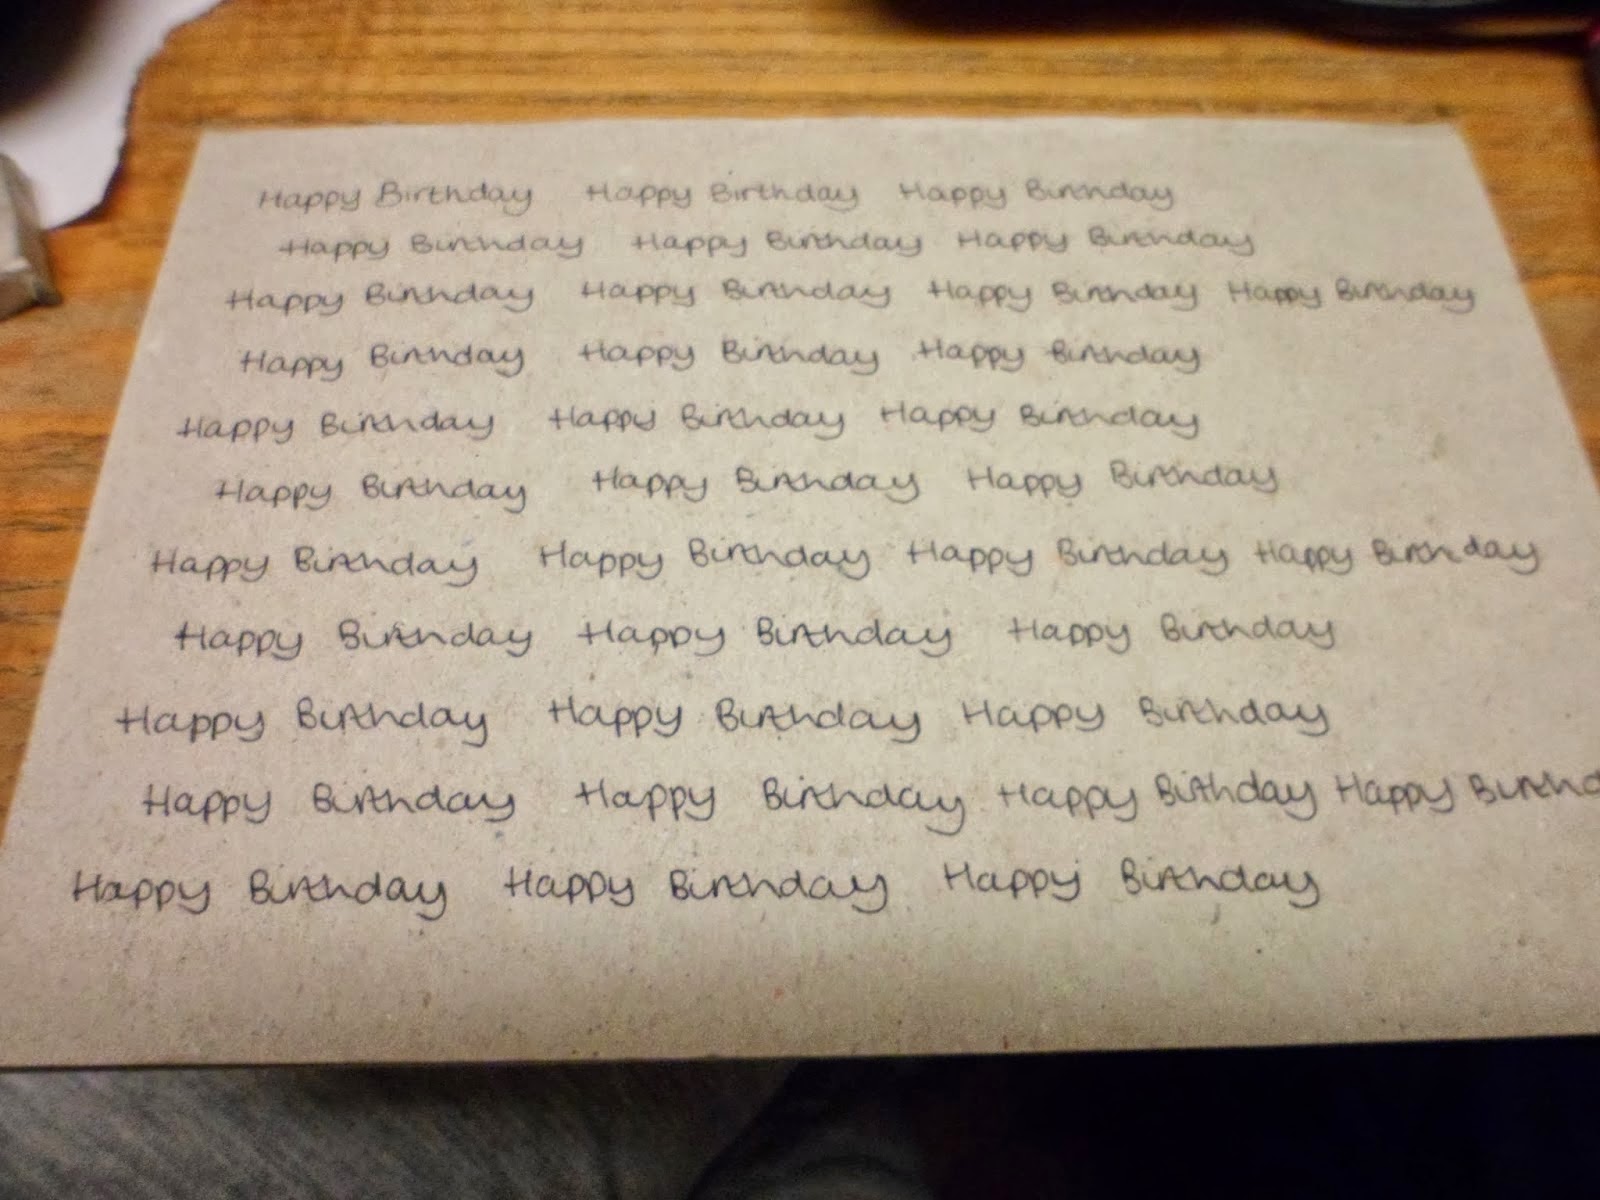 Happy Birthday Happy Birthday Happy Birthday
Happy Birthday Happy Birthday Happy Birthday
Happy Birthday Happy Birthday Happy Birthday Happy Birthday
Happy Birthday Happy Birthday Happy Birthday
Happy Birthday Happy Birthday Happy Birthday
Happy Birthday Happy Birthday Happy Birthday
Happy Birthday Happy Birthday Happy Birthday Happy Birthday
Happy Birthday Happy Birthday Happy Birthday
Happy Birthday Happy Birthday Happy Birthday
Happy Birthday Happy Birthday Happy Birthday Happy Birthd
Happy Birthday Happy Birthday Happy Birthday